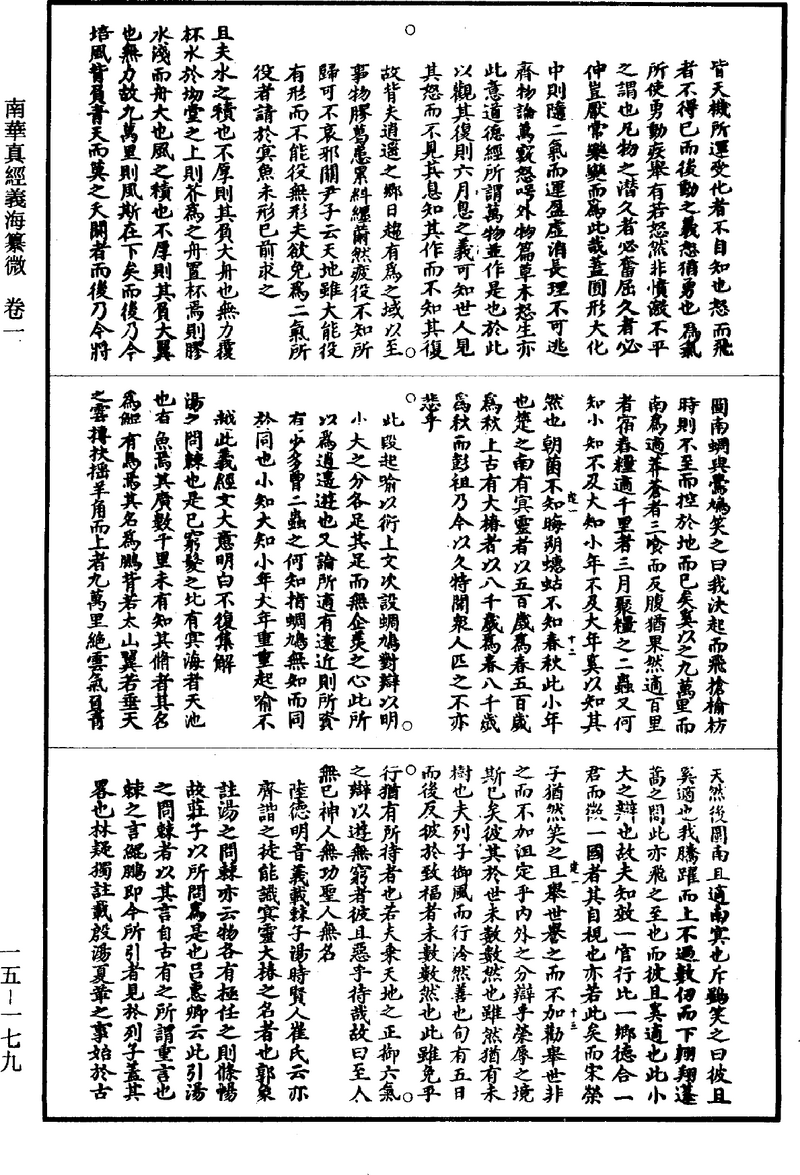 南華真經義海纂微　卷一
一五—一七九
皆天機所運受化者不自知也怒而飛
者不得已而後動之義怒猶勇也為氣
所使勇動疾舉有若怒然非憤激不平
之謂也凡物之潛久者必奮屈久者必
伸豈厭常樂變而為此哉蓋囿形大化
中則隨二氣而運盈虛消長理不可逃
齊物論萬竅怒呺外物篇草木怒生亦
此意道德經所謂萬物並作是也於此
以觀其復則六月息之義可知世人見
其怒而不見其息知其作而不知其復
故背夫逍遙之鄉日趨有為之域以至
事物膠葛患累糾纏薾然疲役不知所
歸可不哀邪關尹子云天地雖大能役
有形而不能役無形夫欲免為二氣所
役者請於冥魚未形已前求之
且夫水之積也不厚則其負大舟也無力覆
杯水於坳堂之上則芥為之舟置杯焉則膠
水淺而舟大也風之積也不厚則其負大翼
也無力故九萬里則風斯在下矣而後乃今
培風背負青天而莫之夭閼者而後乃今將
圖南蜩與鷽鳩笑之曰我決起而飛搶榆枋
時則不至而控於地而已矣奚以之九萬里而
南為適莽蒼者三飡而反腹猶果然適百里
者宿舂糧適千里者三月聚糧之二蟲又何
知小知不及大知小年不及大年奚以知其
然也朝菌不知晦朔蟪蛄不知春秋此小年
也楚之南有冥靈者以五百歲為春五百歲
為秋上古有大椿者以八千歲為春八千歲
為秋而彭祖乃今以久特聞衆人匹之不亦
悲乎
此段起喻以衍上文次設蜩鳩對辯以明
小大之分各足其足而無企羨之心此所
以為逍遙遊也又論所適有遠近則所資
有少多曾二蟲之何知指蜩鳩無知而同
於同也小知大知小年大年重重起喻不
越此義經文大意明白不復集解
湯之問棘也是已窮髮之北有冥海者天池
也有魚焉其廣數千里未有知其脩者其名
為鯤有鳥焉其名為鵬背若太山翼若垂天
之雲摶扶搖羊角而上者九萬里絕雲氣負青
天然後圖南且適南冥也斥鷃笑之曰彼且
奚適也我騰躍而上不過數仞而下翱翔蓬
蒿之間此亦飛之至也而彼且奚適也此小
大之辯也故夫知效一官行比一鄉德合一
君而徵一國者其自視也亦若此矣而宋榮
子猶然笑之且舉世譽之而不加勸舉世非
之而不加沮定乎內外之分辯乎榮辱之境
斯已矣彼其於世未數數然也雖然猶有未
樹也夫列子御風而行泠然善也旬有五日
而後反彼於致福者未數數然也此雖免乎
行猶有所待者也若夫乘天地之正御六氣
之辯以遊無窮者彼且惡乎待哉故曰至人
無已神人無功聖人無名
陸德明音義載棘子湯時賢人崔氏云亦
齊諧之徒能識冥靈大椿之名者也郭象
註湯之問棘亦云物各有極任之則條暢
故莊子以所問為是也呂惠卿云此引湯
之問棘者以其言自古有之所謂重言也
棘之言鯤鵬即今所引者見於列子蓋其
畧也林疑獨註載殷湯夏革之事始於古